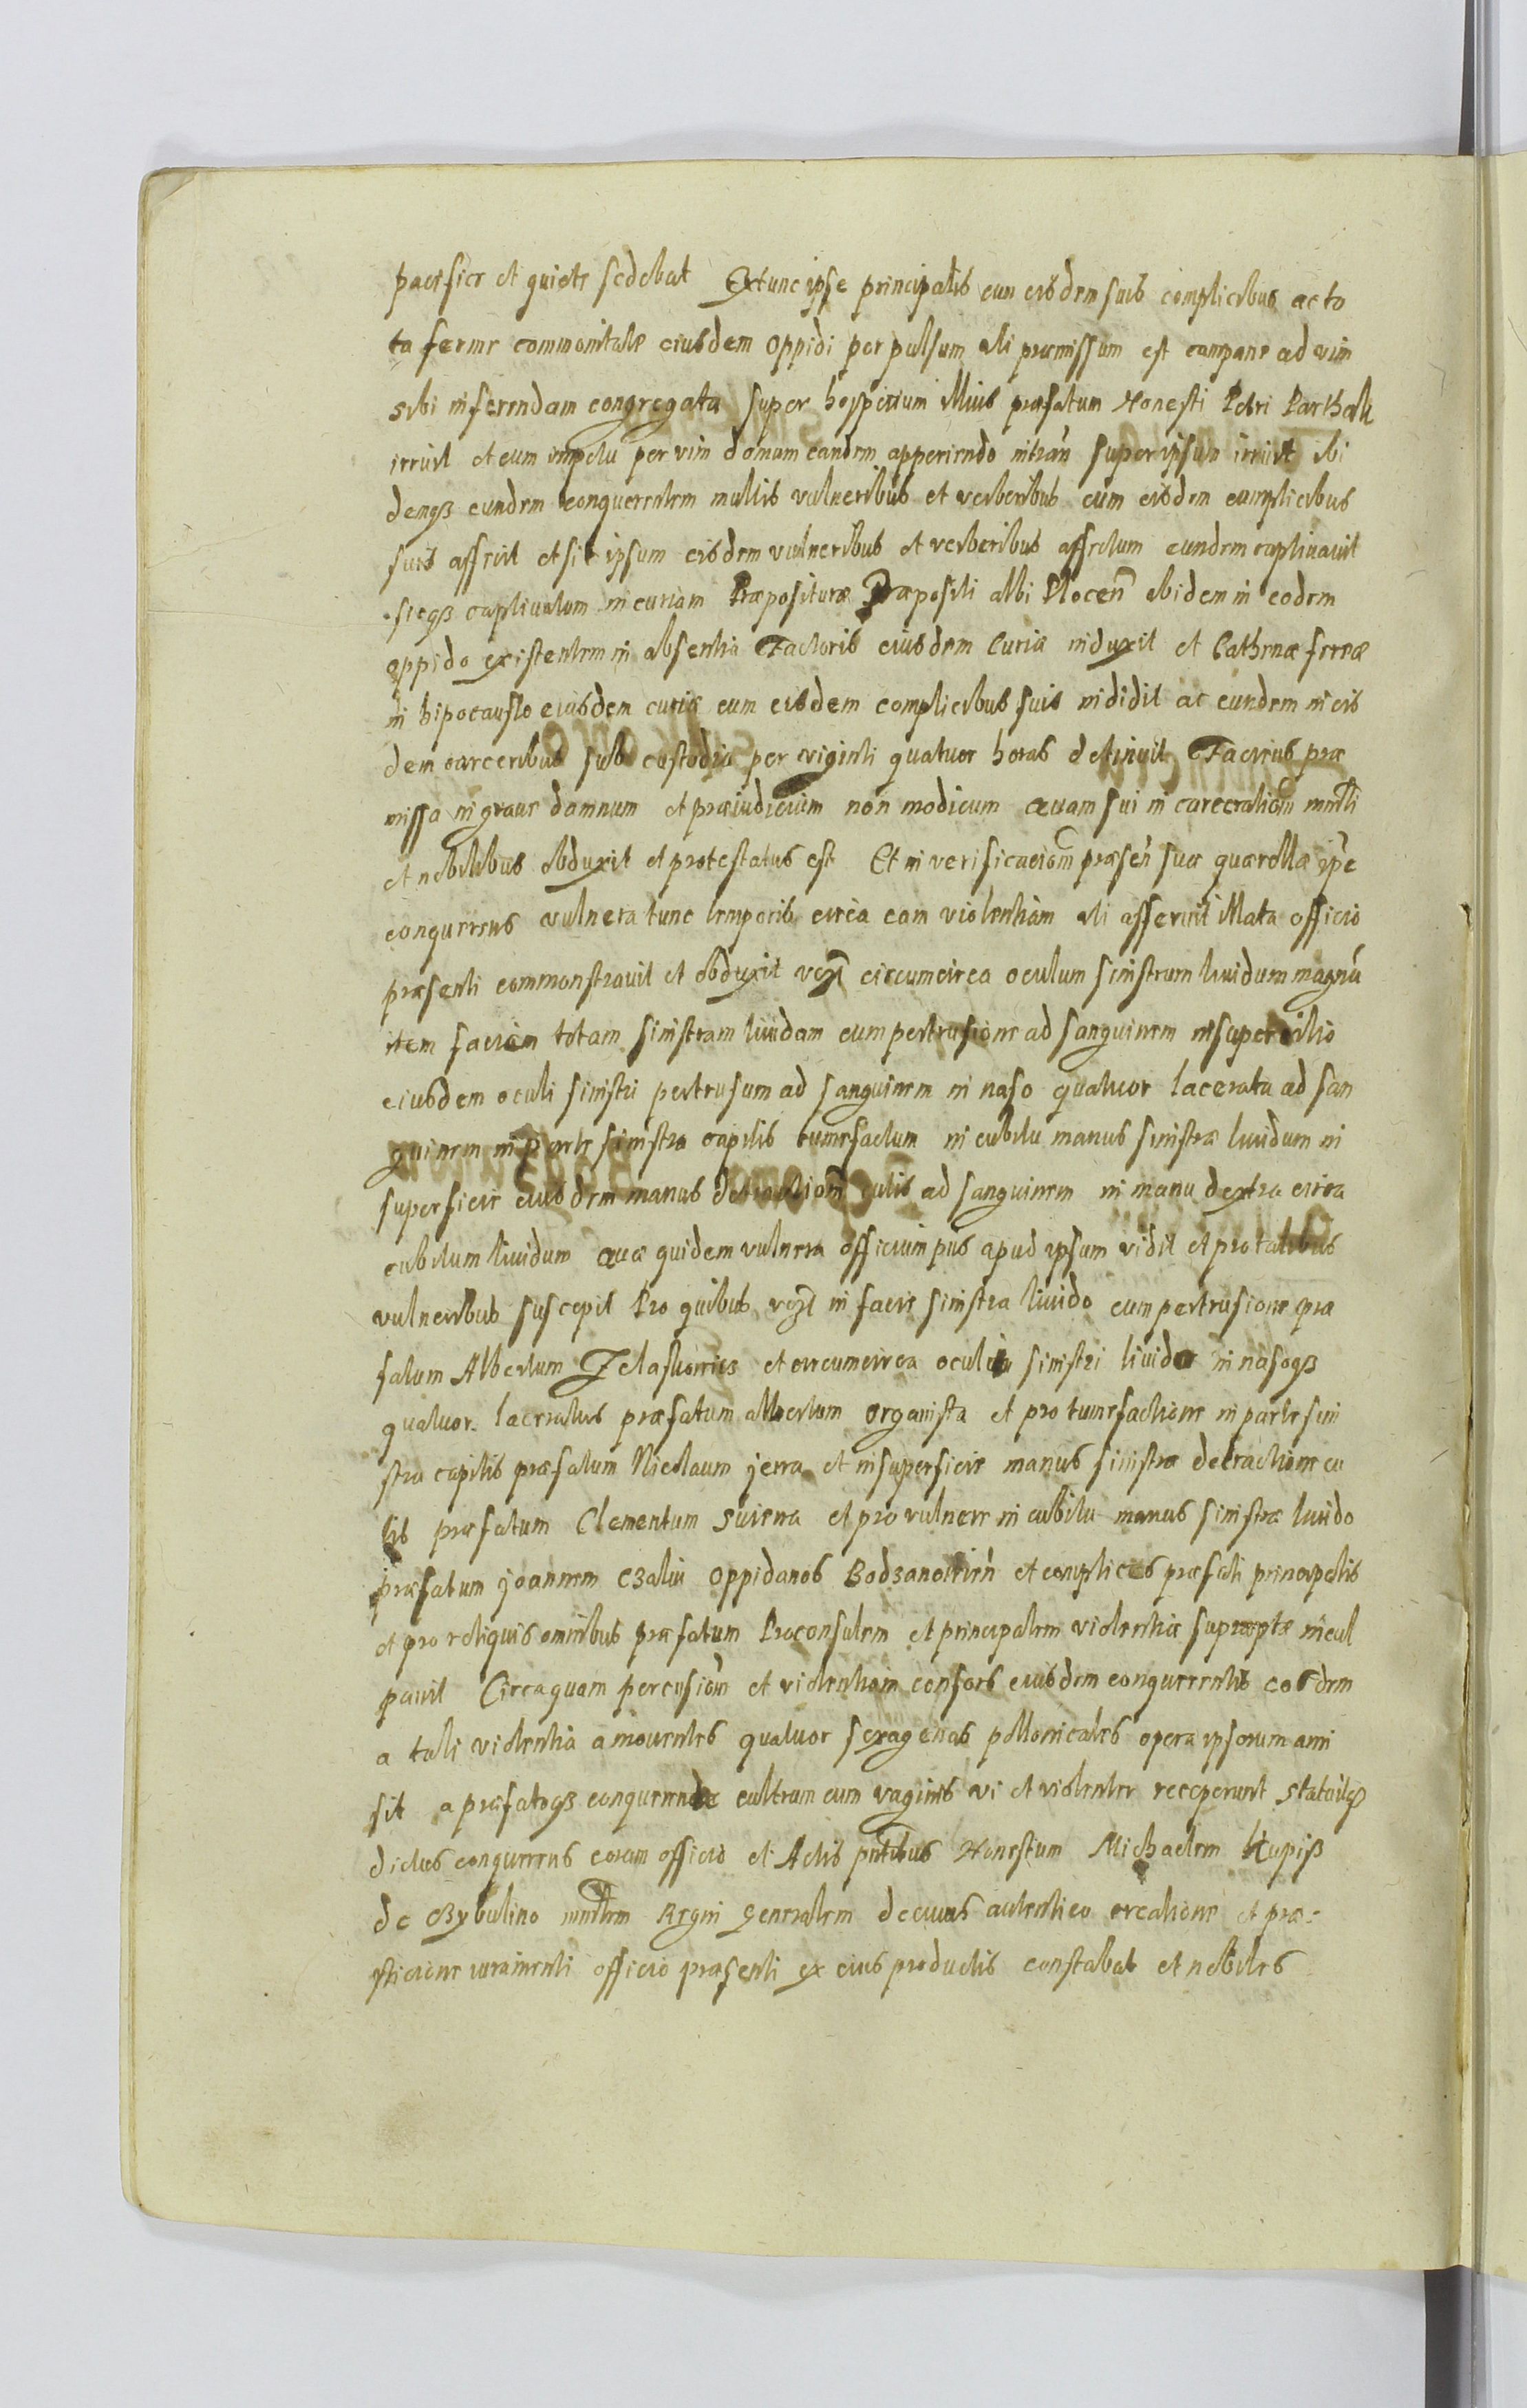 pacifice et quiete sedebat Extunc ipse principalis cum eisdem suis complicibus ac to
ta ferme communitate eiusdem oppidi per pulsum uti præmissum est campane ad vim
sibi inferendam congregata super hospitium illius præfatum Honesti Petri Parthak
irruit et cum impetu per vim domum eandem apperiendo intran super ipsum irruit ibi
demqз eundem conquerentem multis vulneribus et verberibus cum eisdem complicibus
suis affecit et sic ipsum eisdem vulneribus et verberibus affectum eundem captivavit
sicqз captivatum in curiam Præposituræ Præpositi albi Plocen ibidem in eodem
oppido existentem in absentia Factoris eiusdem Curiæ induxit et Cathenæ ferreæ
in hipocausto eiusdem curiæ cum eisdem complicibus suis indidit ac eundem in eis
dem carceribus sub custodia per viginti quatuor horas detinuit Facines præ
missa in grave damnum et præiudicium non modicum quam sui in carceration mnrli
et nobilibus obduxit et protestatus est Et in verificaciom præsen suæ quærellæ ipse
conquerens vulnera tunc temporis circa eam violentiam uti asseruit illata officio
præsenti commonstravit et obduxit vcзt circumcirca oculum sinistrum lividum magnu
item faciem totam sinistram lividam cum pertrusione ad sanguinem in supercilio
eiusdem oculi sinistri pertrusum ad sanguinem in naso quatuor lacerata ad san
guinem in parte sinistra capitis tumefactum in cubitu manus sinistræ lividum in
superficie eiusdem manus detractiom cutis ad sanguinem in manu dextra circa
cubitum lividum quæ quidem vulnera officium pns apud ipsum vidit et pro talibus
vulneribus suscepit Pro quibus vcзt in facie sinistra livido cum pertrusione præ
fatum Albertum Zelasko et circumcirca oculi sinistri livido in nasoqз
quatuor laceratis præfatum albertum organista et pro tumefactione in parte sini
stra capitis præfatum Nicolaum jerra et in superficie manus sinistræ detractione cu
tis præfatum Clementum Suierra et pro vulnere in cubitu manus sinistræ livido
præfatum joannem Cзaliu oppidanos Bodзanovien et complices præfati principalis
et pro reliquis omnibus præfatum Proconsulem et principalem violentiæ suprascptæ incul
pavit Circa quam percusiom et violentiam consors eiusdem conquerentis eosdem
a tali violentia amoventes quatuor sexagenas pollonicales opera ipsorum ami
sit a præfatoqз conquerente cultrum cum vaginis vi et violenter receperunt statuitqз
dictus conquerens coram officio et Actis pntibus Honestum Michaelem Kupiß
de Cybulino mnrlem Regni generalem de cuius autentica creatione et præ-
sticione iuramenti officio præsenti ex eius productis constabat et nobiles